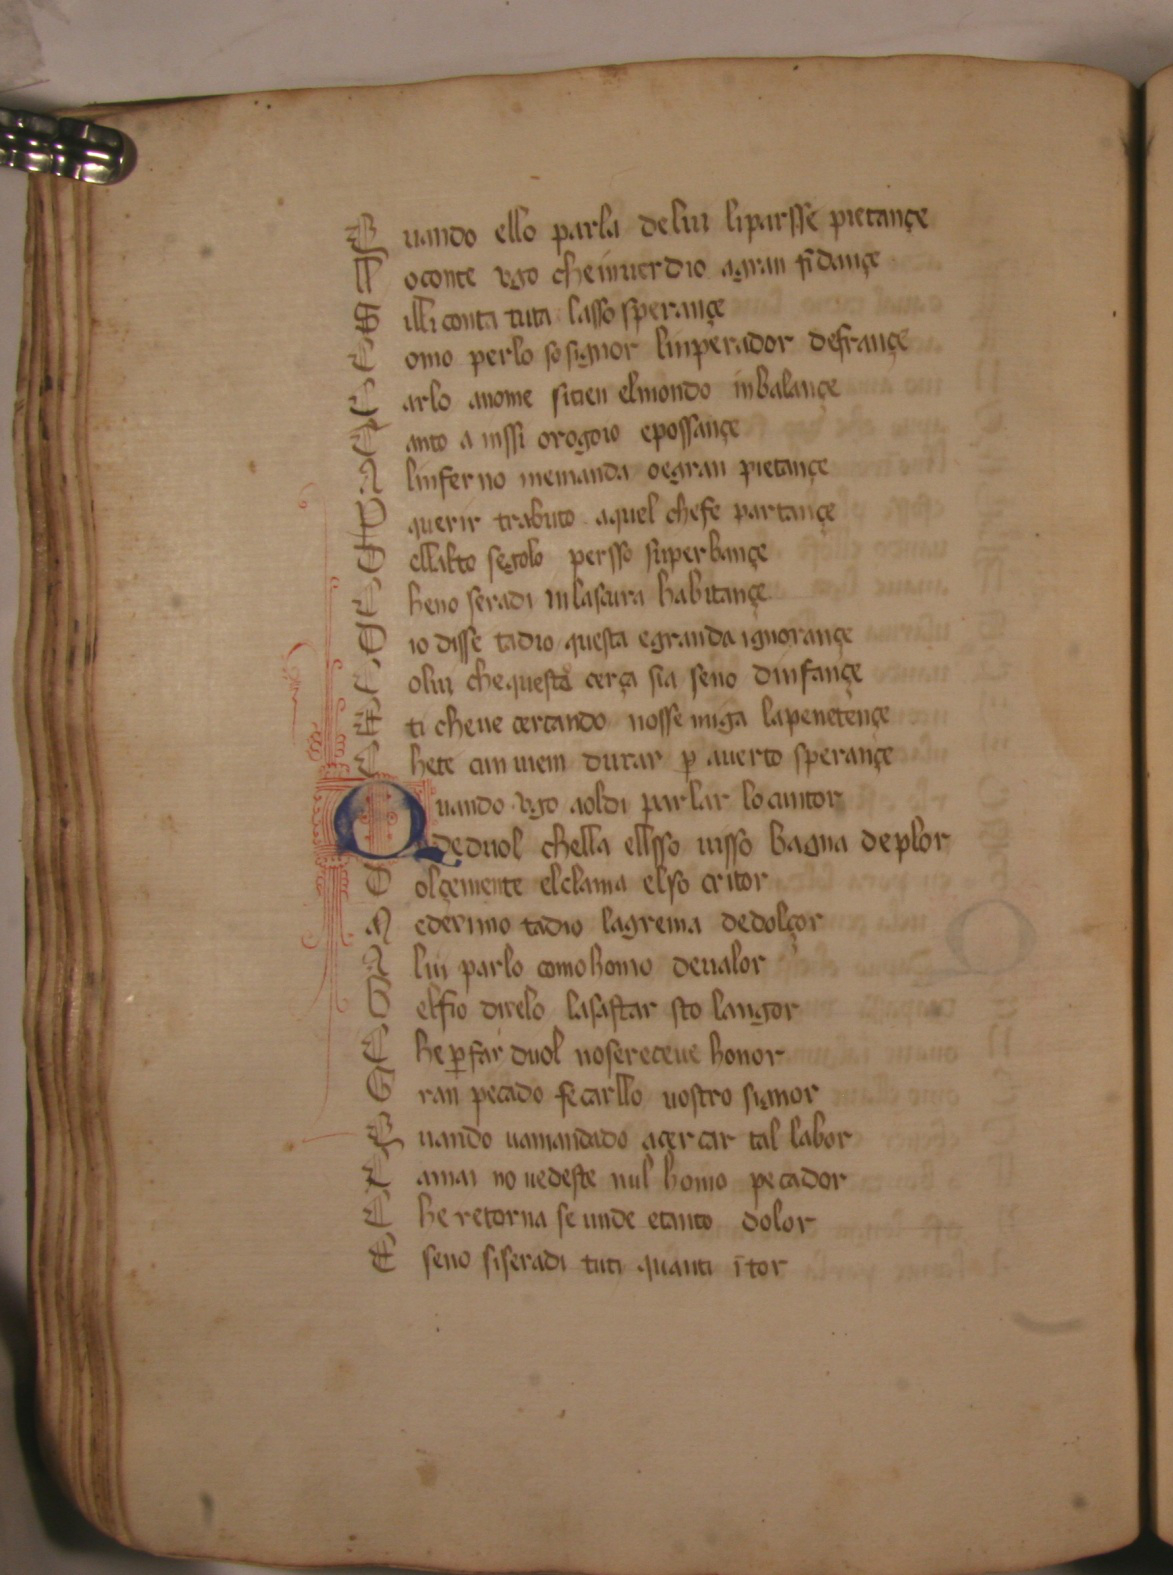 Quando ello parla de lui li parsse pietançe
No conte vgo che in uer dio a gran fidançe
Silli conta tuta lasso sperançe
Como per lo so signor linperador de françe
Carlo a nome si tien el mondo in balançe
Tanto a in ssi orogoio e possançe
A linferno me manda
P querir trabuto a quel che fe partançe
De
Che no seradi in la scura habitançe
Dio disse tadio questa e granda ignorançe
Colui che questa cerça sia seno dinfançe
E ti che ue cercando no sse miga la penetençe
Che te cun uien durar p auerto sperançe
Quando vgo aoldi parlar lo cuntor
De duol chella ello sso uisso bagna de plor
Dolçemente el clama el so critor
Mederimo tadio lagrema de dolçor
A lui parlo como homo de ualor
Bel fio direlo lasa star sto langor
Che p far duol no se receue honor
Gran pecado fe carllo uostro signor
Quando ua mandado a çercar tal labor
Ça mai no uedeste nul homo pecador
Che retorna se unde e tanto dolor
E seno si seradi tuti quanti